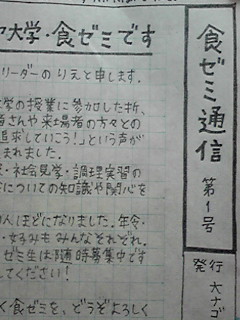 食ゼミ通信
第1号
発行 大ナゴ
大学・食ゼミです
リーダーの りえと申します。
学の授業に参加した折、
者さんや来場者の方々との
追求していこう!」という声が
まれました。
・社会見学・調理実習の
についての知識や関心を
人ほどになりました。年令・
・好みも みんなそれぞれ。
ゼミ生は随時募集中です
してください!
く食ゼミを、どうぞよろしく